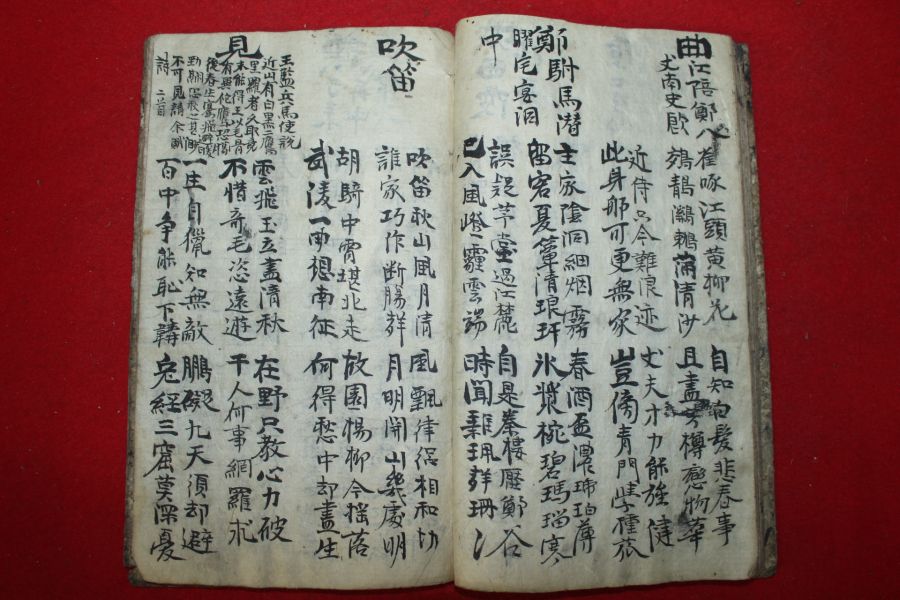 曲江陪鄭八 雀啄江頭黃柳花 自知白髮悲春事
丈南史飮 鵁鶄鸂鶒滿清沙 且盡芳樽戀物華
近侍只今難浪迹 丈夫才力能強健
此身那可更無家 豈傍青門學種瓜
鄭駙馬潜 主家陰洞細烟霧 春酒盃濃琥珀薄
曜宅宴洞 留客夏簟清琅玕 氷漿椀碧瑪瑙寒
中 誤疑茅堂過江麓 自是秦樓壓鄭谷
已入風磴霾雲端 時聞雜珮聲珊〻
吹笛 吹笛秋山風月清 風飄律呂相和切
誰家巧作断腸聲 月明開山幾處明
胡騎中宵堪北走 故園楊柳今搖落
武陵一曲想南征 何得愁中却盡生
見
王監兵馬使說
近山有白黑二鷹
羅者久取竟
未能得王以毛骨
有異他鷹恐臘
後春生騫飛避暖
勁翮思秋之甚眇
不可見請余賦
詩 二首
雲飛玉立盡清秋 在野只教心力破
不惜奇毛恣遠遊 千人何事網羅求
一生自獵知無敵 鵬礙九天須却避
百中爭能恥下韝 兔經三窟莫深憂